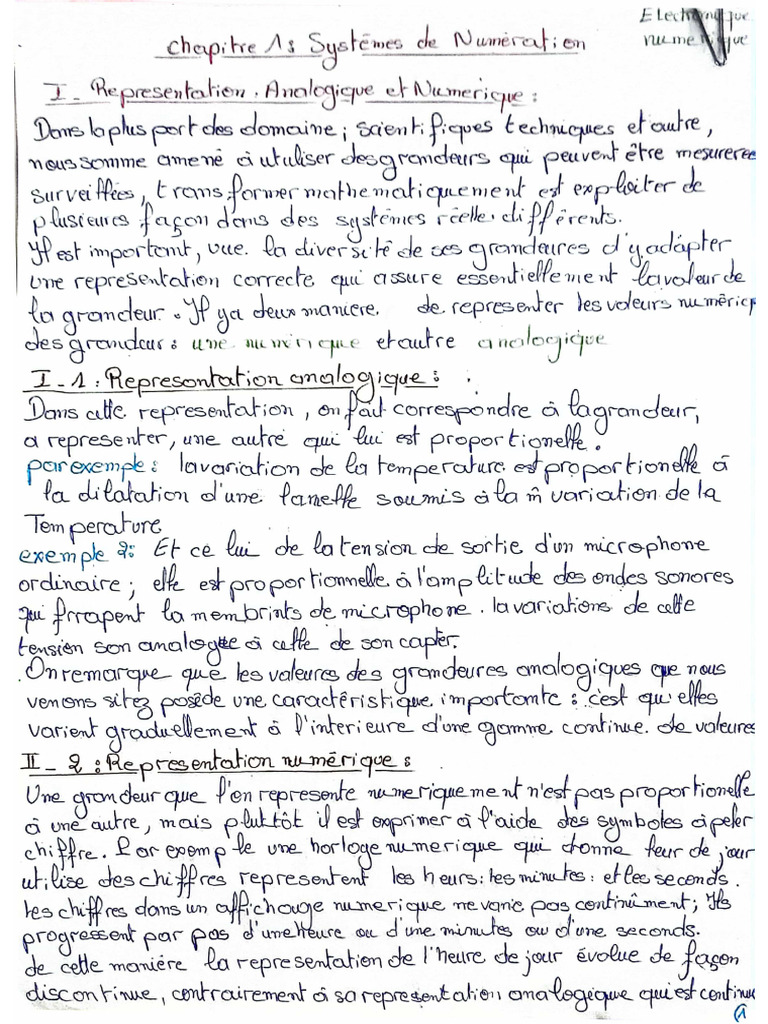 Electronique
numerique
chapitre 1: Systêmes de Numération
I - Representation. Analogique et Numerique:
Dans la plus part des domaine; scientifiques techniques et autre,
nous somme amené à utuliser des grandeurs qui peuvent être mesureree
surveillées, transformer mathematiquement est exploiter de
plusieures façon dans des systèmes réelle. différents.
Il est important, vue. la diversité de ses grandeures d'y adapter
une representation correcte qui assure essentiellement la valeur de
la grandeur. Il ya deux maniere de representer les valeurs numériq
des grandeur: une numirique et autre analogique
I - 1: Represontation analogique:
Dans cette representation, on fait correspondre à la grandeur,
a representer, une autre qui lui est proportionelle.
par exemple: la variation de la temperature est proportionelle à
la dilatation d'une lamelle soumis à la m̂ variation de la
Temperature
exemple 2: Et ce lui de la tension de sortie d'un microphone
ordinaire; elle est proportionnelle à l'amplitude des ondes sonores
qui frrapent la membrints de microphone. la variations de cette
tension son analogue à cette de son capter.
On remarque que les valeures des grandeures analogiques que nous
venons sitez posède une caractéristique importante: c'est qu'elles
varient graduellement à l'interieure d'une gamme continue. de valeures
II - 2: Representation numérique:
Une grandeur que l'on represente numeriquement n'est pas proportionelle
à une autre, mais plutôt il est exprimer à l'aide des symboles àpeler
chiffre. Par exomple une horloge numerique qui donne leur de jour
utilise des chiffres representent les heurs: les minutes: et les seconds.
les chiffres dans un affichauge numerique ne varie pas continûment; Ils
progressent par pas d'une Heure ou d'une minutes ou d'une seconds.
de cette maniére la representation de l'heure de jour évolue de façon
discontinue, contrairement à sa representation analogique qui est continue
1